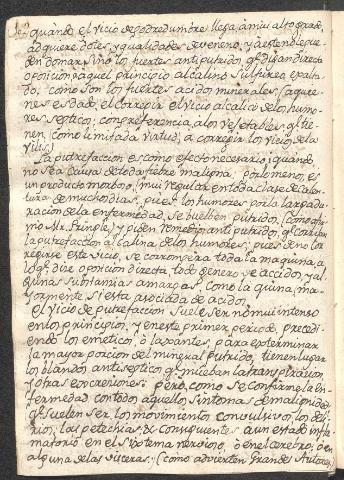 quando el vicio de podredumbre llega à mui alto grado,
adquiere dotes, y qualidades de veneno, y à este no le pue-
den domar sino los fuertes antiputridos, qe. digan directa
oposicion à aquel principio alcalino sulfureo exalta-
do, como son los fuertes acidos minerales (à quie-
nes es dado, el corregir el vicio alcalico de los humo-
res septicos; con preferencia à los vegetables, qe. tie-
nen, como limitada virtud, à corregir los vicios de la
Vilis.)
La putrefaccion es como efecto necesario, quando
no sea causa de toda fiebre maligna; por lo menos, es
un producto morboso, (mui regular en toda clase de calen-
tura de muchos dias, pues los humores por la larga du-
racion de la enfermedad, se buelben putridos, (como afir-
mo Mr. Pringle) y piden remedios antiputridos, qe. corrijan
la putrefaccion alcalina de los humores; pues de no cor-
regirse este vicio, se corromperà toda la maquina, à
lo qe. dice oposicion directa, todo genero de accidos, y al-
gunas substancias amargas, como la quina, ma-
yormente si està asociada de acido.
El vicio de putrefaccion suele ser no mui intenso
en los principios, y en este primer periodo, precedi-
endo los emeticos, ò laxantes, para exterminar
la mayor porcion del mineral putrido, tienen lugar
los blandos antisepticos qe. muevan la transpiracion,
y otras excreciones: pero, como se confirme la En-
fermedad con todo aquellos sintomas de malignidad
qe. suelen ser los movimientos convulsivos, los deli-
rios, las petechias, &c consiguientes à un estado infla-
matorio en el sistema nervioso, ò en el cerebro, ò en
alguna de las visceras. (como advierten Grandes Autores)